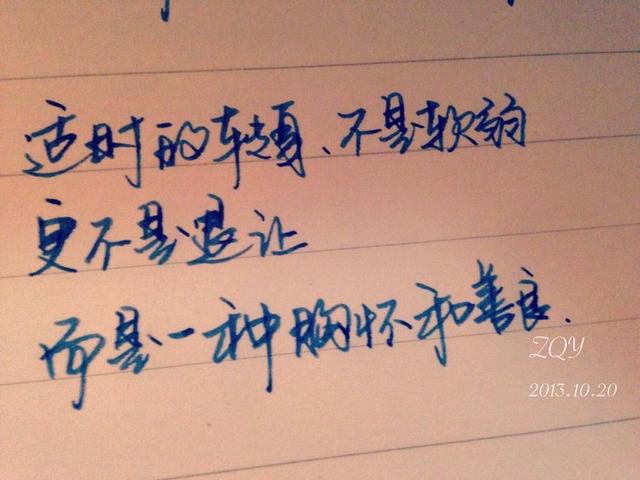 适时的转身、不是软弱
更不是退让
而是一种胸怀和善良.
ZQY
2013.10.20